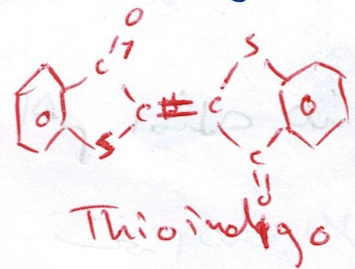 O
C S
O C = C O
S C
O
Thioindigo